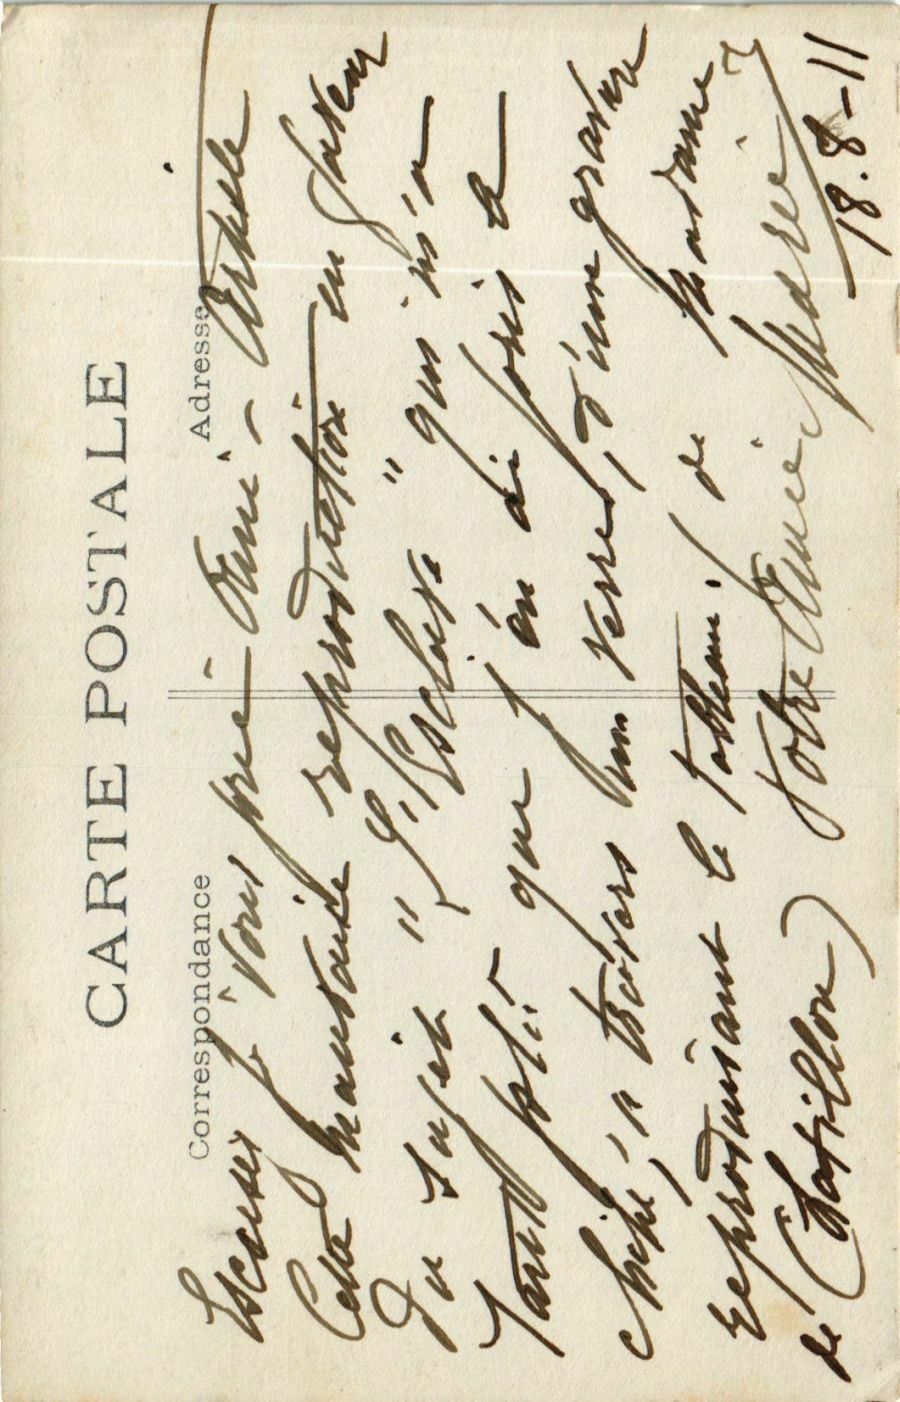 CARTE POSTALE
Correspondance
Adresse
Excusez, je vous prie — Ami — Artiste
Cette mauvaise reproduction en faveur
du sujet " L'Esclave " qui m'a
tant plu que j'en ai pris le
cliché, à travers un verre, d'une gravure
reproduisant le tableau. de Madame
de Chatillon) Votre Amie Marie
18.8-11